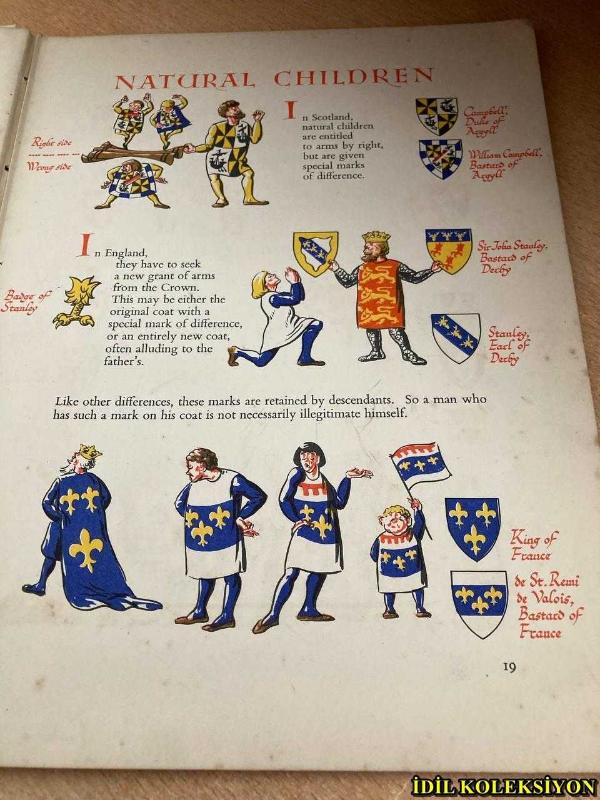 NATURAL CHILDREN
Right side
Wrong side
In Scotland,
natural children
are entitled
to arms by right,
but are given
special marks
of difference.
Campbell,
Duke of
Argyll
William Campbell,
Bastard of
Argyll
In England,
they have to seek
a new grant of arms
from the Crown.
This may be either the
original coat with a
special mark of difference,
or an entirely new coat,
often alluding to the
father's.
Badge of
Stanley
Sir John Stanley,
Bastard of
Derby
Stanley,
Earl of
Derby
Like other differences, these marks are retained by descendants. So a man who
has such a mark on his coat is not necessarily illegitimate himself.
King of
France
de St. Remi
de Valois,
Bastard of
France
19
İDİL KOLEKSİYON